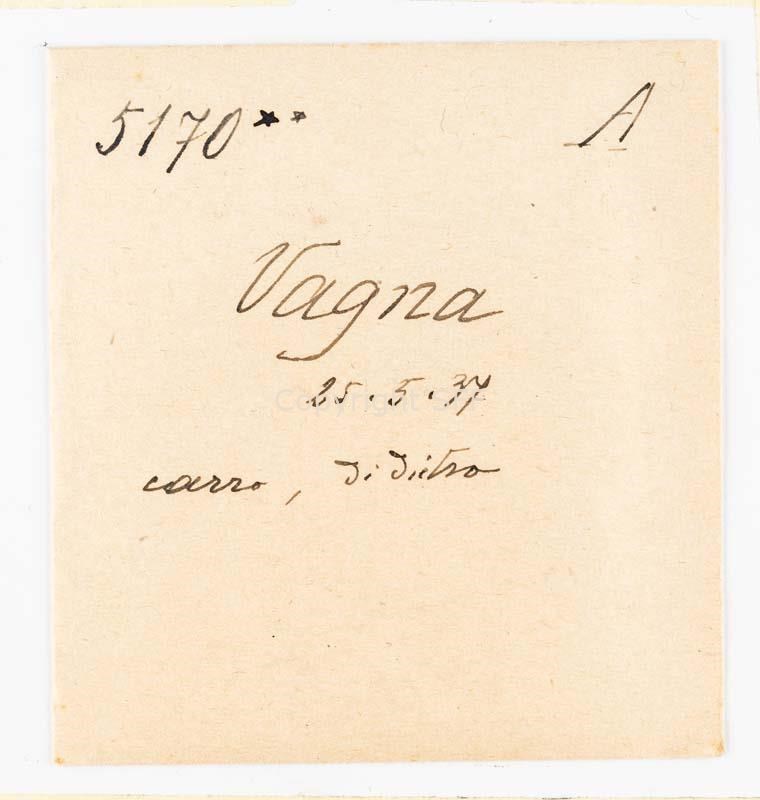 5170** A
Vagna
25.5.37
carro, di dietro